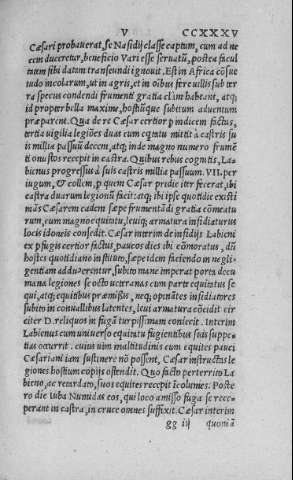 V CCXXXV
Cæsari probauerat, se Nasidij classe captum, cum ad ne
cem duceretur, beneficio Vari esse seruatũ, postea facul
tatem sibi datam transeundi ignouit. Est in Africa cõsue
tudo incolarum, ut in agris, et in oĩbus fere uillis sub ter
ra specus condendi frumenti gratia clam habeant, atq;
id propter bella maxime, hostiũque subitum aduentum
præparent. Qua de re Cæsar certior p indicem factus,
tertia uigilia legiões duas cum eqtatu mittit à castris su
is millia passuũ decem, atq; inde magno numero frumẽ
ti onustos recepit in castra. Quibus rebus cognitis, La
bienus progressus à suis castris millia passuum. VII. per
iugum, & collem, p quem Cæsar pridie iter fecerat, ibi
castra duarum legionũ facit: atq; ibi ipse quotidie existi
mãs Cæsarem eadem sæpe frumentãdi gratia cõmeatu
rum, cum magno equitatu, leuiq; armatura insidiaturus
locis idoneis consedit. Cæsar interim de insidijs Labieni
ex pfugis certior factus, paucos dies ibi cõmoratus, dũ
hostes quotidiano instituto, sæpe idem faciendo in negli
gentiam adducerentur, subito mane imperat porta decu
mana legiones se octo ueteranas cum parte equitatus se
qui, atq; equitibus præmissis, neq; opinãtes insidiatores
subito in conuallibus latentes, leui armatura cõcidit cir
citer D. reliquos in fugã turpissimam coniecit. Interim
Labienus cum uniuerso equitatu fugientibus suis suppe
tias occurrit. cuius uim multitudinis cum equites pauci
Cæsariani iam sustinere nõ possent, Cæsar instructas le
giones hostium copijs ostendit. Quo facto perterrito La
bieno, ac retardato, suos equites recepit ĩcolumes. Poste
ro die Iuba Numidas eos, qui loco amisso fuga se rece-
perant in castra, in cruce omnes suffixit. Cæsar interim
gg iij quoniã